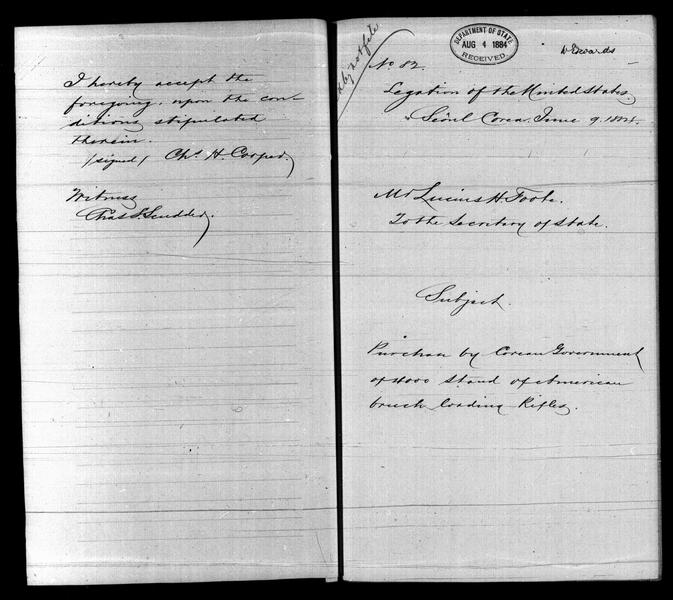 I hereby accept the
foregoing, upon the con-
ditions stipulated
therein.
(signed) Chs. H. Cooper.
Witness
Chas S. Scudder.
DEPARTMENT OF STATE
AUG 4 1884
RECEIVED
No 82.
Legation of the United States,
Séoul Corea. June 9. 1884.
Mr Lucius H. Foote.
To the Secretary of State.
Subject.
Purchase by Corean Government
of 4000 stand of American
breech loading Rifles.